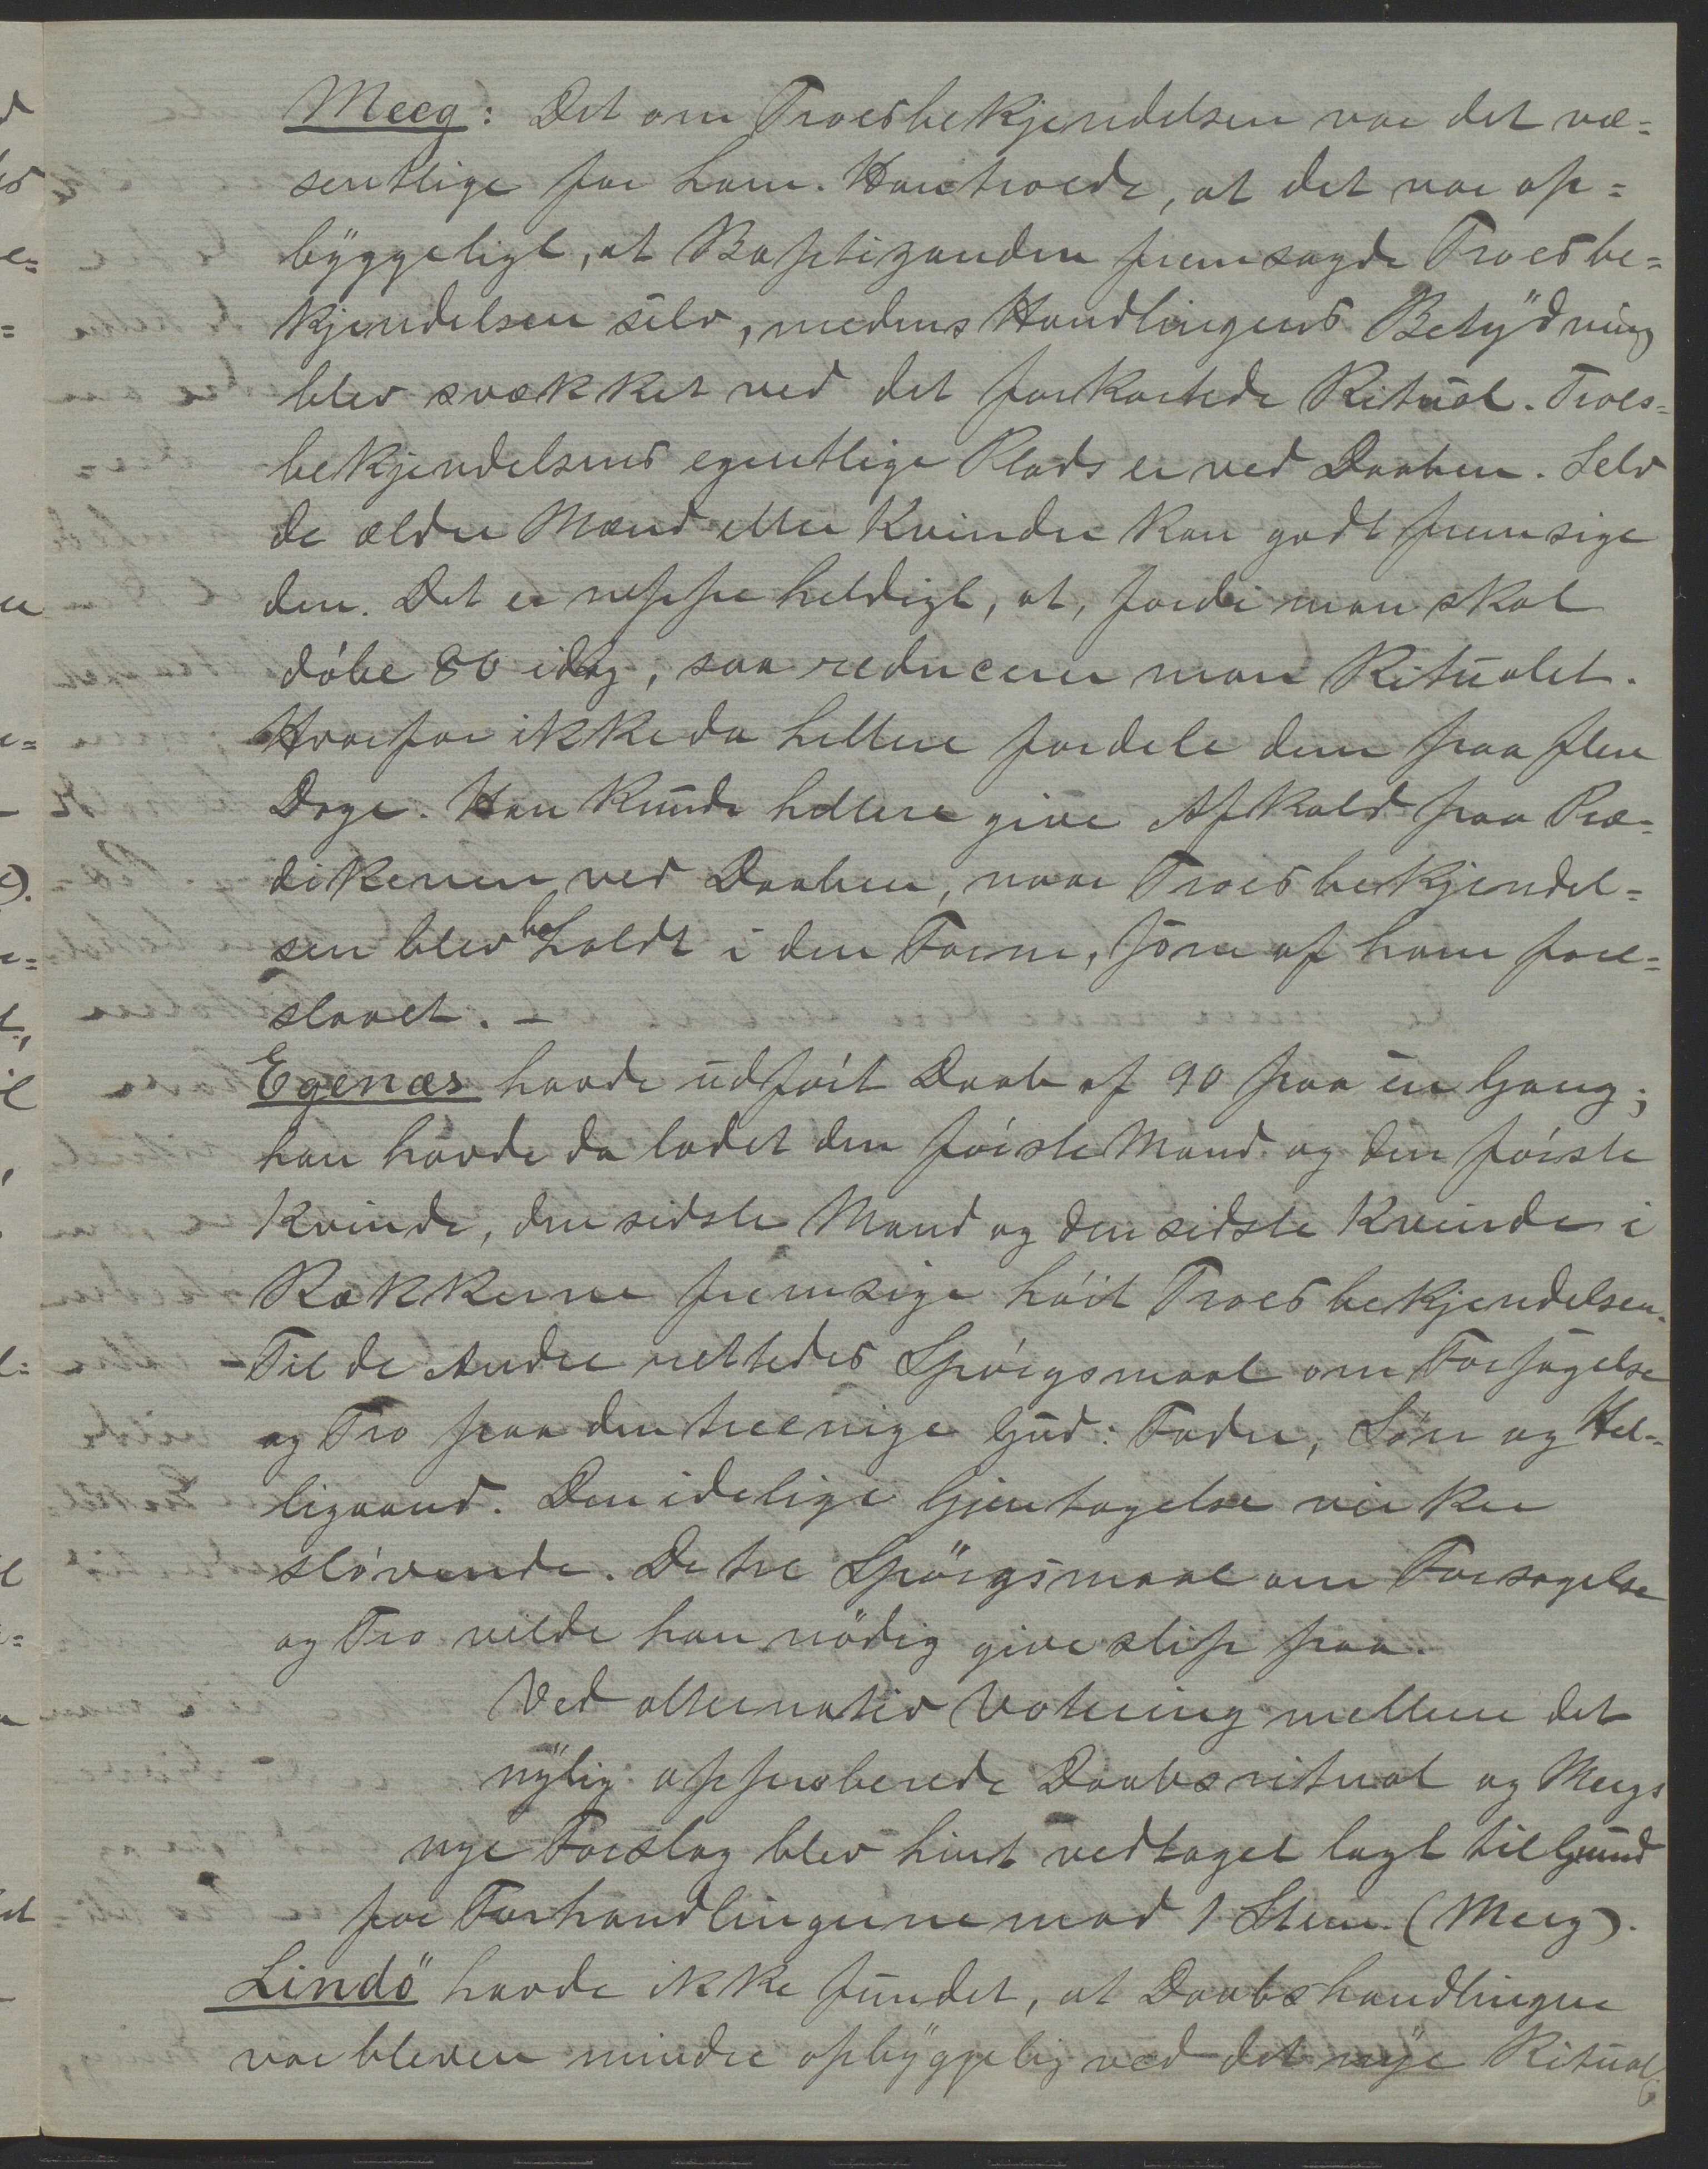 Meeg: Det om Troesbekjendelsen var det væ=
sentlige for ham. Han troede, at det var op=
byggeligt, at Baptizanden fremsagde Troesbe=
kjendelsen selv, medens Handlingens Betydning
blev svækket ved det forkortede Ritual. Troes=
bekjendelsens egentlige Plads er ved Daaben. Selv
de ældre Mænd eller Kvinder kan godt fremsige
den. Det er neppe heldigt, at, fordi man skal
döbe 80 idag, saa reducerer man Ritualet.
Hvorfor ikke da hellere fordele dem paa flere
Dage. Han kunde hellere give Afkald paa Præ=
dikenen ved Daaben, naar Troesbekjendel=
sen blev beholdt i den Form, som af ham fore=
slaaet. –
Egenæs havde udfört Daab af 90 paa en Gang;
han havde da ladet den förste Mand og den förste
Kvinde, den sidste Mand og den sidste Kvinde i
Rækkerne fremsige höit Troesbekjendelsen.
Til de Andre rettedes Spörgsmaal om Forsagelse
og Tro paa den treenige Gud: Fader, Sön og Hel=
ligaand. Den idelige Gjentagelse virker
slövende. De tre Spörgsmaal om Forsagelse
og Tro vilde han nödig give slip paa.
Ved alternativ Votering mellem det
nylig approberede Daabsritual og Meegs
nye Forslag blev hint vedtaget lagt til Grund
for Forhandlingerne mod 1 Stem. (Meeg).
Lindö havde ikke fundet, at Daabshandlingen
var bleven mindre opbyggelig ved det nye Ritual;